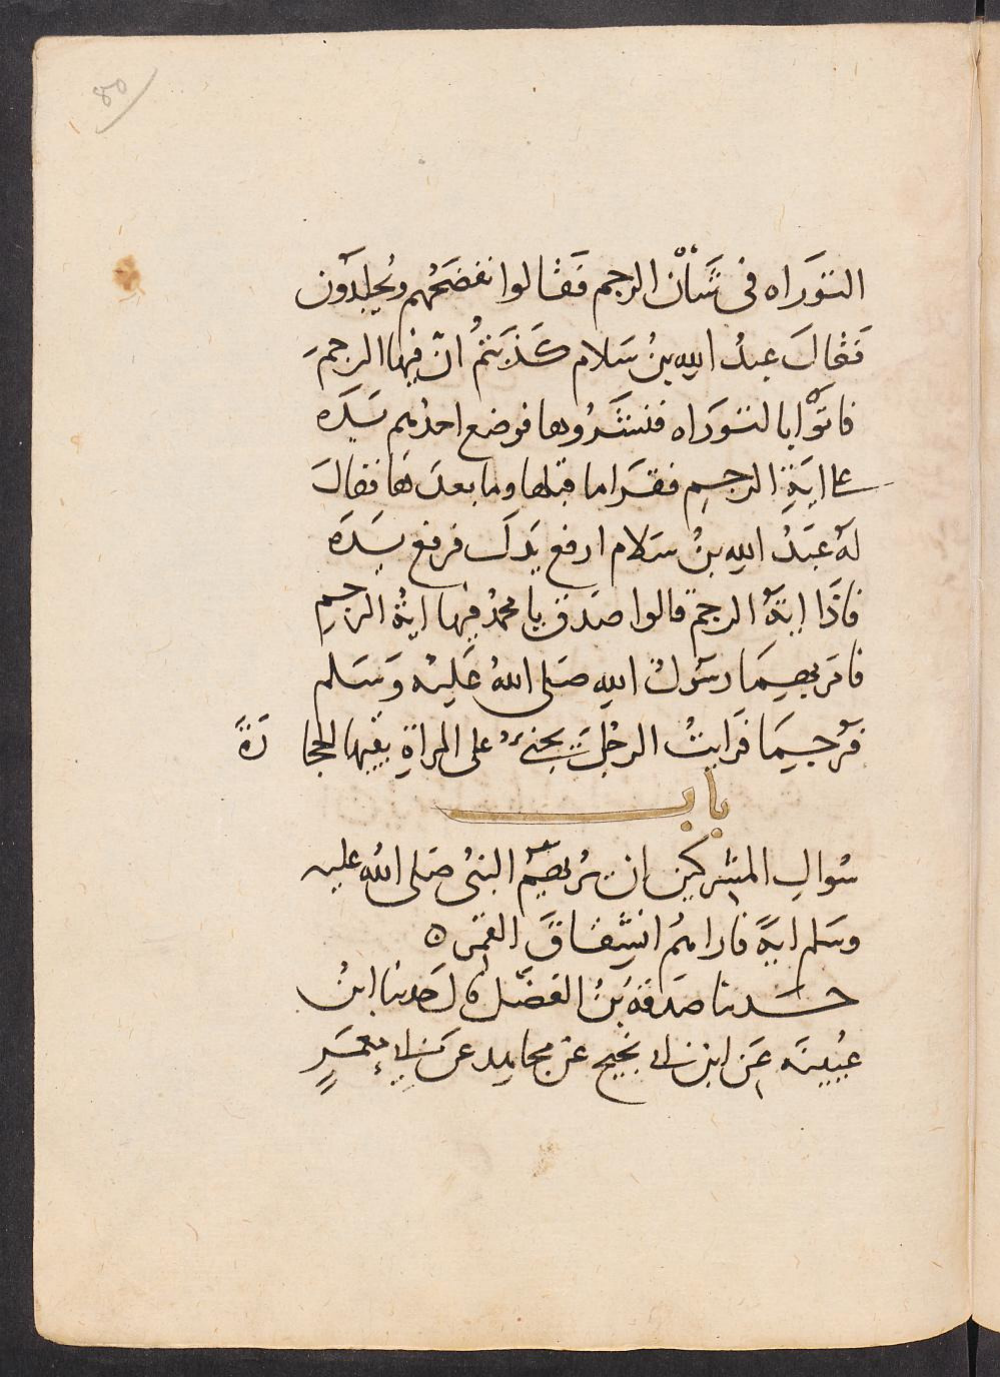 ٨٥
التوراه فى شأن الرجم فقالوا نفضحهم ويُجلدون
فقالَ عبدُ الله بنُ سَلام كَذَبتمُ انّ فيها الرجمَ
فاتَوْا بالتوراه فنشَرُوها فوضع احدُهم يَدَه
على ايَةِ الرجمِ فقَرَا ما قبلها وما بعدَهَا فقالَ
لهُ عَبدُ الله بنُ سَلام ارفع يَدَكَ فرفع يَدَه
فاذَا ايَةُ الرجم قالوا صَدَق يا محمدُ فيها ايةُ الرجمِ
فامَر بهِمَا رسَولُ الله صَلى اللهُ عَليْه وَسَلم
فَرُجِمَا فَرَايتُ الرجُلَ يَجنىءُ على المراةِ يقيها الحجارَةَ
باب
سُوالِ المشركين ان يُرِيَهمُ النبىُ صَلى اللهُ عليه
وسَلم ايةً فاراهمُ انشِقاقَ القمَر ٥
حَدثنا صَدَقةُ بَنُ الفضَل قالَ حَدثنا ابنُ
عُيينَه عَن ابن ابى نجيح عَن مجاهِد عَن ابى مَعمَرٍ